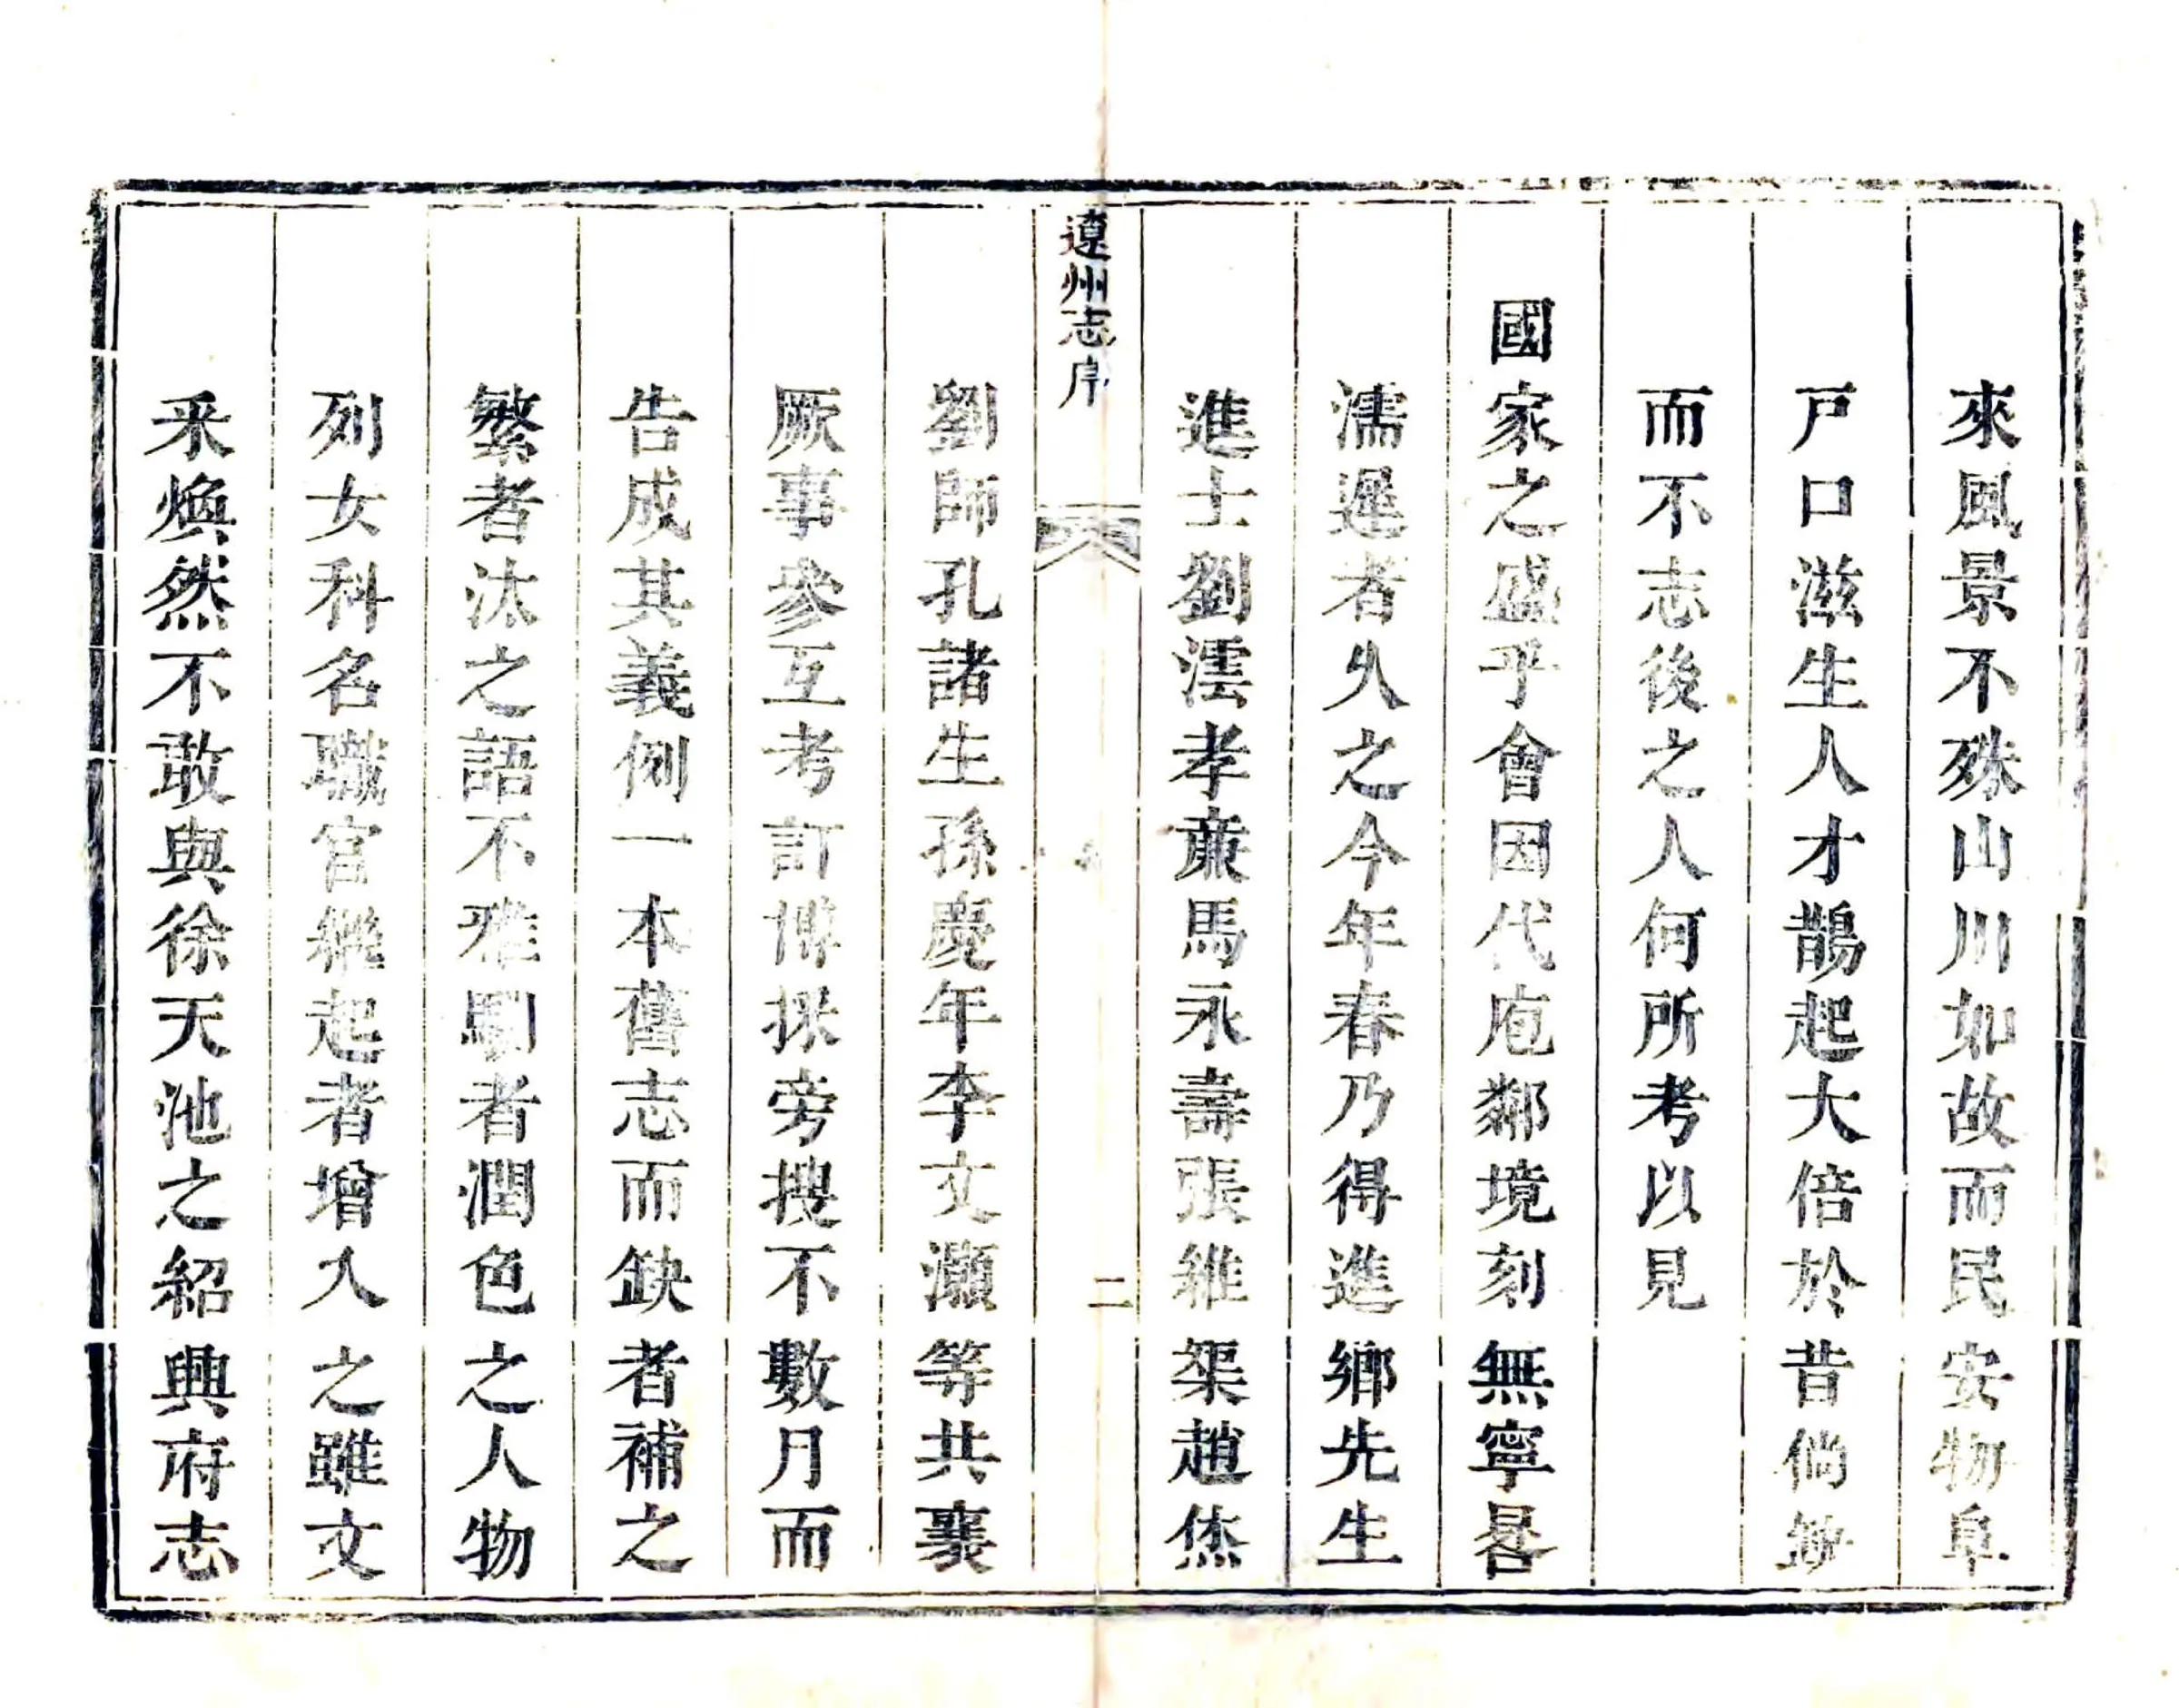 來風景不殊山川如故而民安物阜
戸口滋生人才鵲起大倍於昔倘
而不志後之人何所考以見
國家之盛乎會因代庖鄰境刻無寧晷
濡遲者久之今年春乃得進鄉先生
進士劉澐孝亷馬永壽張維榘趙烋
遼州志序
二
劉師孔諸生孫慶年李文灝等共襄
厥事參互考訂博採旁搜不數月而
告成其義例一本舊志而缺者補之
繁者汰之語不雅馴者潤色之人物
列女科名職官繼起者增入之雖文
釆煥然不敢與徐天池之紹興府志